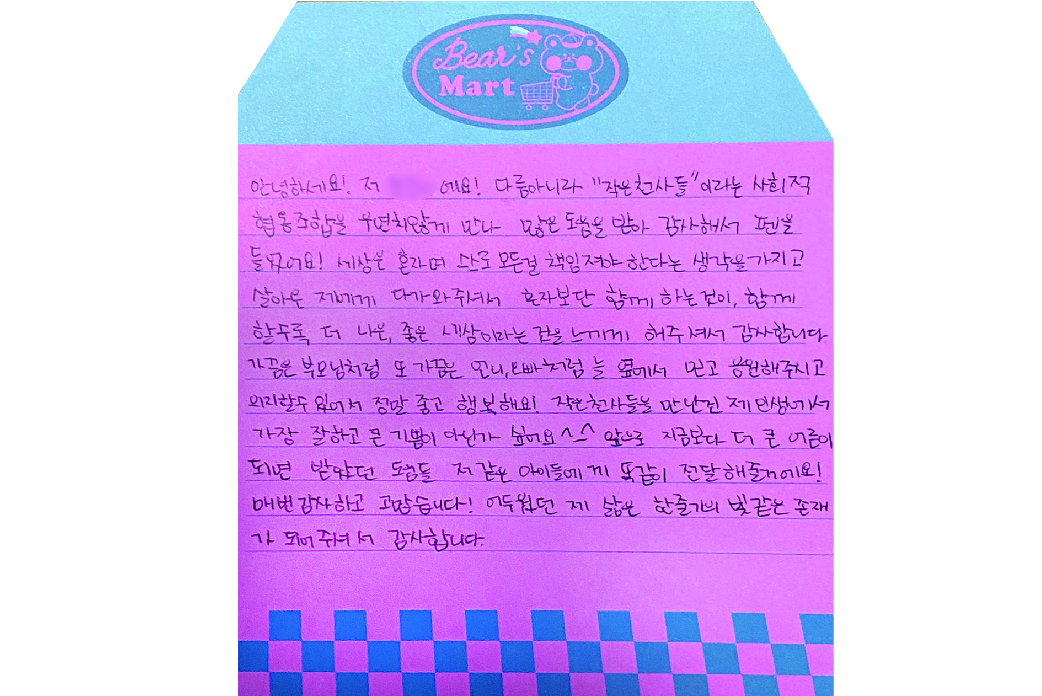 Bear's
Mart
안녕하세요! 저 에요! 다름아니라 "작은천사들"이라는 사회적
협동조합을 우연치않게 만나 많은 도움을 받아 감사해서 펜을
들었어요! 세상은 혼자며 스스로 모든걸 책임져야 한다는 생각을 가지고
살아온 저에게 다가와주셔서 혼자보단 함께 하는것이, 함께
할수록 더 나은, 좋은 세상이라는 것을 느끼게 해주셔서 감사합니다
가끔은 부모님처럼 또 가끔은 언니,오빠처럼 늘 옆에서 믿고 응원해주시고
의지할수 있어서 정말 좋고 행복해요! 작은천사들을 만난건 제 인생에서
가장 잘하고 큰 기쁨이 아닌가 싶어요 ^-^ 앞으로 지금보다 더 큰 어른이
되면 받았던 도움들 저 같은 아이들에게 똑같이 전달해줄거에요!
매번 감사하고 고맙습니다! 어두웠던 제 삶은 한줄기의 빛같은 존재
가 되어 주셔서 감사합니다.